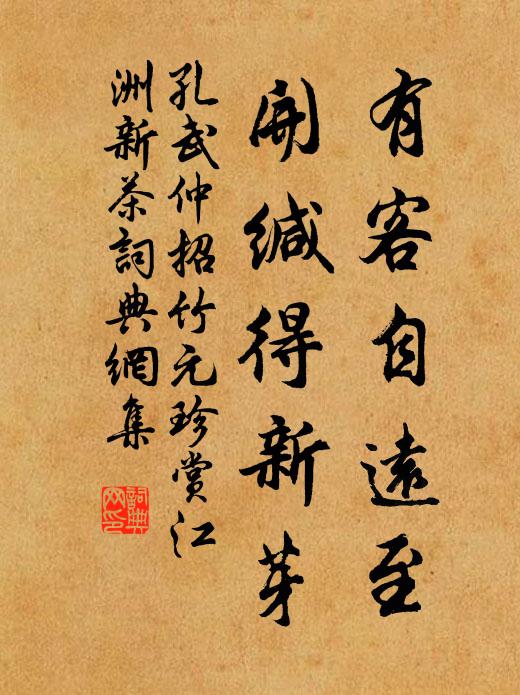 有客自遠至
開緘得新芽
孔武仲招竹元珍賞江
洲新茶詞典網集
詞典
网印